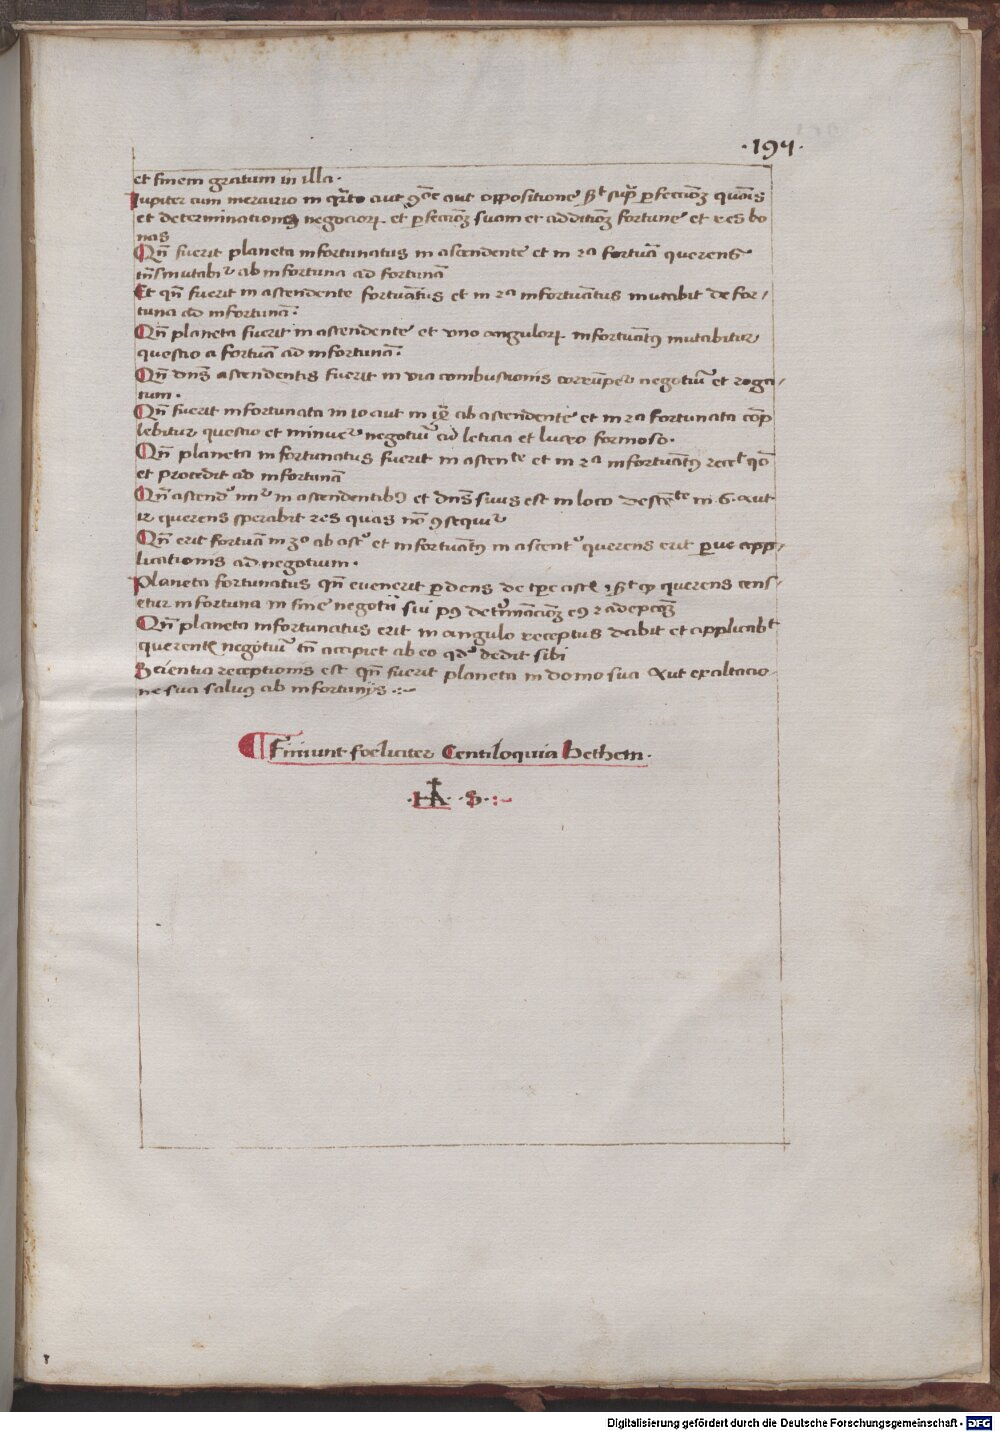 ·194·
et finem gratum in illa·
Iupiter cum mercurio in qrto aut aut oppositione st sup perfeccioez quois
et determinationez negocioꝝ et perfeccioez suam et additioez fortune et res bo
nas
Qn̄ fuerit planeta infortunatus in ascendente et in 7a fortu̅a querens
tn̄smutabir ab infortuna ad fortuna̅
Et qn̄ fuerit in ascendente fortuna̅tus et in 7a infortuna̅tus mutabit de for/
tuna ad infortuna̅·
Qn̄ planeta fuerit in ascendente et uno anguloꝝ infortuna̅tꝰ mutabitur
questio a fortu̅a ad infortuna̅·
Qn̄ dn̄s ascendentis fuerit in via combustionis corru̅per negotiu̅ et roga/
tum·
Qn̄ fuerit infortunata in 10 aut in ab ascendente et in 7a fortunata co̅p
lebitur questio et minuer negotiu̅ cu̅ leticia et lucro formoso·
Qn̄ planeta infortunatus fuerit in ascente et in 7a infortuna̅tꝰ
et procedit ad infortuna̅
Qn̄ ascend in ascendentibꝰ et dn̄s suus est in loco descente in 6· aut
12 querens sperabit res quas no̅ ꝯsequir
Qn̄ erit fortu̅a in 30 ab asc et infortuna̅tꝰ in ascent querens erit app/
licationis ad negotium·
Planeta fortunatus qn̄ evenerit perdens de asc st querens cens/
etur infortuna in fine negotii sui pꝰ
Qn̄ planeta infortunatus erit in angulo receptus dabit et applicabt
querenti negotiu̅ tn̄ accipiet ab eo qd dedit sibi
Scientia receptionis est qn̄ fuerit planeta in domo sua Aut exaltacio-
ne sua salvꝰ ab infortunijs ·:~
¶ Finiunt foeliciter Centiloquia Bethem·
·HA· ·S· :~
Digitalisierung gefördert durch die Deutsche Forschungsgemeinschaft · DFG